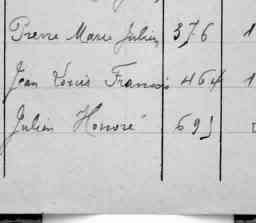 Pierre Marie Julien 376 1
Jean Louis Francois 464 1
Julien Honoré 695